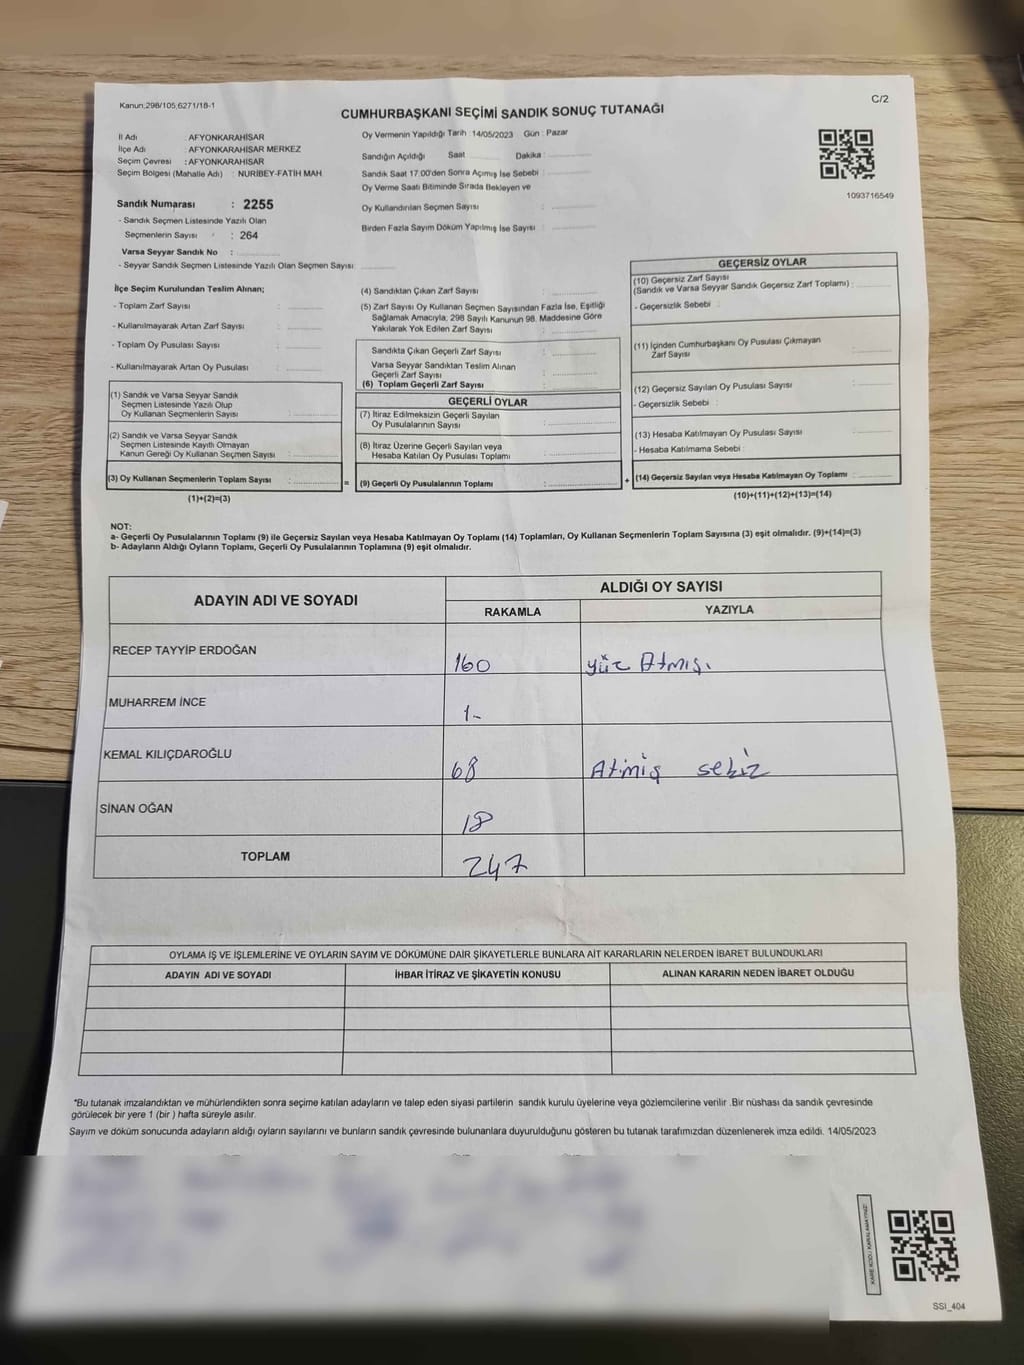 Kanun:298/105,6271/18-1
C/2
CUMHURBAŞKANI SEÇİMİ SANDIK SONUÇ TUTANAĞI
İl Adı : AFYONKARAHİSAR
İlçe Adı : AFYONKARAHİSAR MERKEZ
Seçim Çevresi : AFYONKARAHİSAR
Seçim Bölgesi (Mahalle Adı) : NURİBEY-FATİH MAH
Sandık Numarası : 2255
- Sandık Seçmen Listesinde Yazılı Olan
Seçmenlerin Sayısı : 264
Varsa Seyyar Sandık No :
- Seyyar Sandık Seçmen Listesinde Yazılı Olan Seçmen Sayısı
Oy Vermenin Yapıldığı Tarih 14/05/2023 Gün : Pazar
Sandığın Açıldığı Saat Dakika :
Sandık Saat 17.00'den Sonra Açımış İse Sebebi :
Oy Verme Saati Bitiminde Sırada Bekleyen ve
Oy Kullandırılan Seçmen Sayısı :
Birden Fazla Sayım Döküm Yapılmış İse Sayısı :
1093716549
İlçe Seçim Kurulundan Teslim Alınan;
- Toplam Zarf Sayısı :
- Kullanılmayarak Artan Zarf Sayısı :
- Toplam Oy Pusulası Sayısı :
- Kullanılmayarak Artan Oy Pusulası :
(1) Sandık ve Varsa Seyyar Sandık
Seçmen Listesinde Yazılı Olup
Oy Kullanan Seçmenlerin Sayısı :
(2) Sandık ve Varsa Seyyar Sandık
Seçmen Listesinde Kayıtlı Olmayan
Kanun Gereği Oy Kullanan Seçmen Sayısı :
(3) Oy Kullanan Seçmenlerin Toplam Sayısı :
(1)+(2)=(3)
=
(4) Sandıktan Çıkan Zarf Sayısı :
(5) Zarf Sayısı Oy Kullanan Seçmen Sayısından Fazla İse, Eşitliği
Sağlamak Amacıyla, 298 Sayılı Kanunun 98. Maddesine Göre
Yakılarak Yok Edilen Zarf Sayısı :
Sandıkta Çıkan Geçerli Zarf Sayısı :
Varsa Seyyar Sandıktan Teslim Alınan
Geçerli Zarf Sayısı :
(6) Toplam Geçerli Zarf Sayısı :
GEÇERLİ OYLAR
(7) İtiraz Edilmeksizin Geçerli Sayılan
Oy Pusulalarının Sayısı :
(8) İtiraz Üzerine Geçerli Sayılan veya
Hesaba Katılan Oy Pusulası Toplamı :
(9) Geçerli Oy Pusulalarının Toplamı :
+
GEÇERSİZ OYLAR
(10) Geçersiz Zarf Sayısı
(Sandık ve Varsa Seyyar Sandık Geçersiz Zarf Toplamı) :
- Geçersizlik Sebebi :
(11) İçinden Cumhurbaşkanı Oy Pusulası Çıkmayan
Zarf Sayısı :
(12) Geçersiz Sayılan Oy Pusulası Sayısı :
- Geçersizlik Sebebi :
(13) Hesaba Katılmayan Oy Pusulası Sayısı :
- Hesaba Katılmama Sebebi :
(14) Geçersiz Sayılan veya Hesaba Katılmayan Oy Toplamı :
(10)+(11)+(12)+(13)=(14)
NOT:
a- Geçerli Oy Pusulalarının Toplamı (9) ile Geçersiz Sayılan veya Hesaba Katılmayan Oy Toplamı (14) Toplamları, Oy Kullanan Seçmenlerin Toplam Sayısına (3) eşit olmalıdır. (9)+(14)=(3)
b- Adayların Aldığı Oyların Toplamı, Geçerli Oy Pusulalarının Toplamına (9) eşit olmalıdır.
ADAYIN ADI VE SOYADI
ALDIĞI OY SAYISI
RAKAMLA YAZIYLA
RECEP TAYYİP ERDOĞAN 160 yüz Atmış.
MUHARREM İNCE 1-
KEMAL KILIÇDAROĞLU 68 Atmiş sekiz
SİNAN OĞAN 18
TOPLAM 247
OYLAMA İŞ VE İŞLEMLERİNE VE OYLARIN SAYIM VE DÖKÜMÜNE DAİR ŞİKAYETLERLE BUNLARA AİT KARARLARIN NELERDEN İBARET BULUNDUKLARI
ADAYIN ADI VE SOYADI İHBAR İTİRAZ VE ŞİKAYETİN KONUSU ALINAN KARARIN NEDEN İBARET OLDUĞU
*Bu tutanak imzalandıktan ve mühürlendikten sonra seçime katılan adayların ve talep eden siyasi partilerin sandık kurulu üyelerine veya gözlemcilerine verilir .Bir nüshası da sandık çevresinde
görülecek bir yere 1 (bir ) hafta süreyle asılır.
Sayım ve döküm sonucunda adayların aldığı oyların sayılarını ve bunların sandık çevresinde bulunanlara duyurulduğunu gösteren bu tutanak tarafımızdan düzenlenerek imza edildi. 14/05/2023
KARE KODU KARALAMAYINIZ!
SSI_404